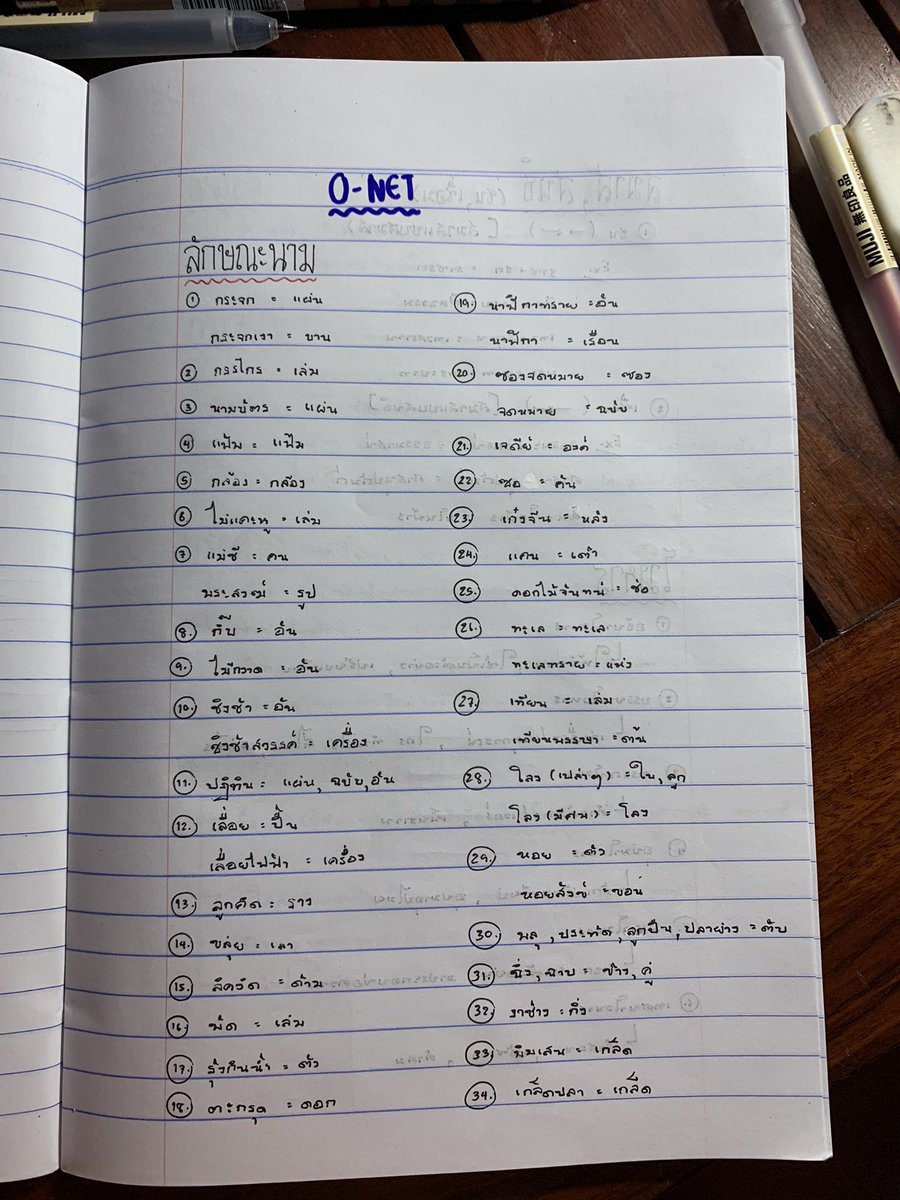 O-NET
ลักษณะนาม
① กระจก = แผ่น
กระจกเงา = บาน
② กรรไกร = เล่ม
③ นามบัตร = แผ่น
④ แฟ้ม = แฟ้ม
⑤ กล้อง = กล้อง
⑥ ไม้แคะหู = เล่ม
⑦ แม่ชี = คน
พระสงฆ์ = รูป
8. กิ๊บ = อัน
9. ไม้กวาด = อัน
10. ชิงช้า = อัน
ชิงช้าสวรรค์ = เครื่อง
11. ปฏิทิน = แผ่น, ฉบับ, อัน
12. เลื่อย = ปื้น
เลื่อยไฟฟ้า = เครื่อง
13. ลูกคิด = ราง
14. ขลุ่ย = เลา
15. ลิควิด = ด้าม
16. พัด = เล่ม
17. รุ้งกินน้ำ = ตัว
18. ตะกรุด = ดอก
19. นาฬิกาทราย = อัน
นาฬิกา = เรือน
20. ซองจดหมาย = ซอง
จดหมาย = ฉบับ
21. เจดีย์ = องค์
22. ซอ = คัน
23. เก๋งจีน = หลัง
24. แคน = เต้า
25. ดอกไม้จันทน์ = ช่อ
26. ทะเล = ทะเล
ทะเลทราย = แห่ง
27. เทียน = เล่ม
เทียนพรรษา = ต้น
28. โลง (เปล่าๆ) = ใบ, ลูก
โลง (มีศพ) = โลง
29. หอย = ตัว
หอยสังข์ = ขอน
30. พลุ, ประทัด, ลูกปืน, ปลาย่าง = ตับ
31. ฉิ่ง, ฉาบ = ข้าง, คู่
32. งาช้าง = กิ่ง
33. พิมเสน = เกล็ด
34. เกล็ดปลา = เกล็ด
MUJI 無印良品